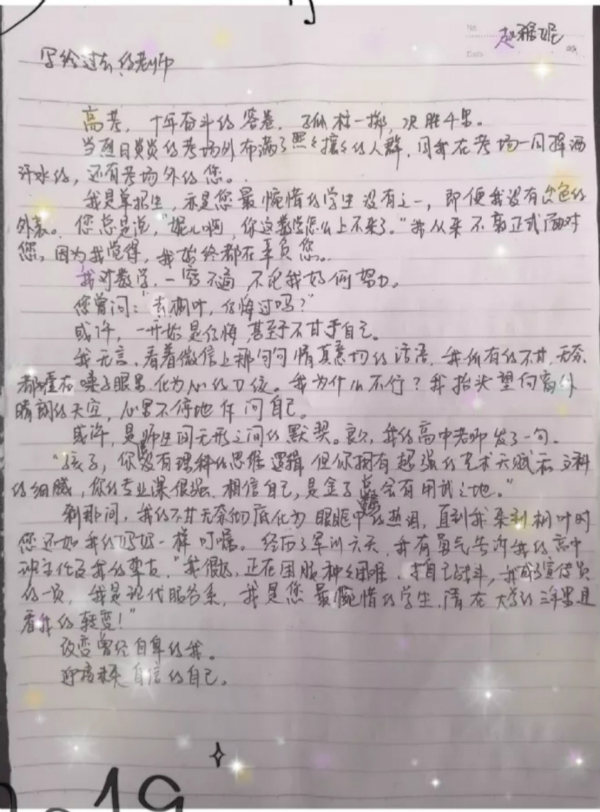 No.
Date
写给过去的老师
高考，十年奋斗的答卷，孤柱一掷，决胜千里。
当烈日炎炎的考场外布满了熙熙攘攘的人群，同我在考场一同挥洒
汗水的，还有考场外的您。
我是单招生，亦是您最惋惜的学生没有之一，即便我没有出色的
外表。您总是说，"妮儿啊，你这数学怎么上不来了。"我从来不敢正式面对
您，因为我觉得，我始终都在辜负您。
我对数学，一窍不通，不论我如何努力。
您曾问："去柳叶，后悔过吗？"
或许，一开始是后悔，甚至于不甘于自己。
我无言，看着微信上那句句情真意切的话语，我所有的不甘，无奈
都噎在嗓子眼里，化为心的刀绞。我为什么不行？我抬头望向窗外
晴朗的天空，心里不停地斥问自己。
或许，是师生间无形之间的默契。我的高中老师发了一句。
"孩子，你没有理科的思维逻辑，但你拥有超强的艺术天赋和文科
的细腻，你的专业课很强。相信自己，是金子总会有用武之地。"
刹那间，我的不甘无奈彻底化为眼眶中的热泪，直到我来到柳叶时
您还如我的妈妈一样叮嘱。经历了军训六天，我有勇气告诉我的高中
班主任及我的挚友。"我很好，正在困难种种困难，才自己战斗，我成了宣传员
的一员，我是现代服务系，我是您最惋惜的学生，请在大学的三年里且
看我的转变！"
改变曾经自卑的我。
迎接未来自信的自己。
19